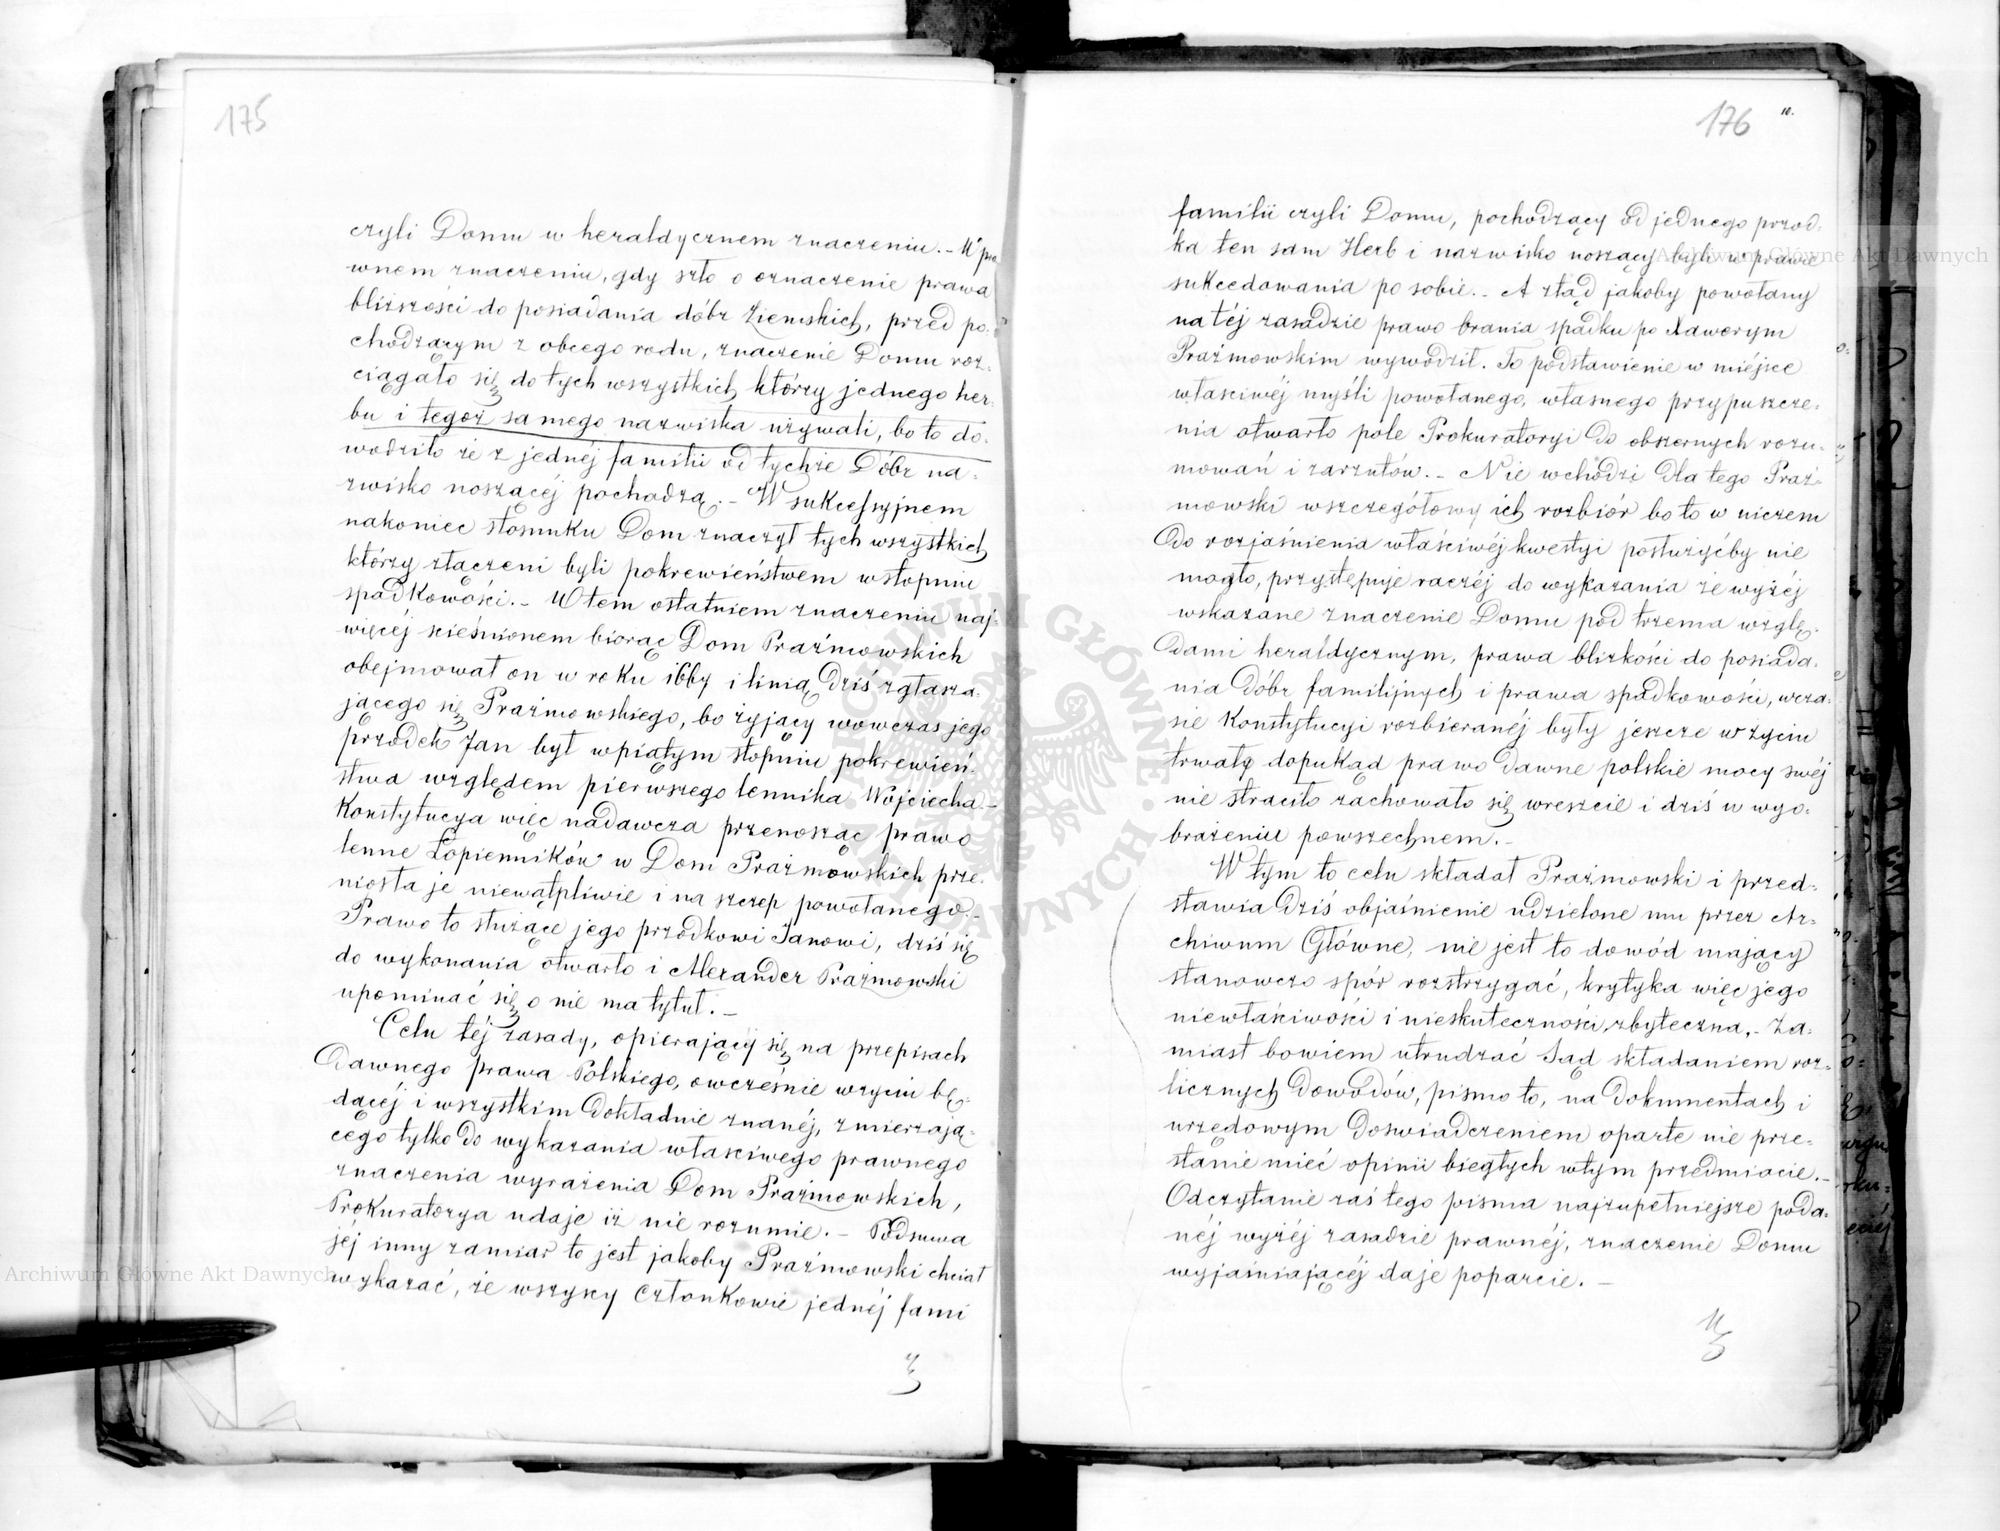 175
czyli Domu w heraldycznem znaczeniu. – W pra
wnem znaczeniu, gdy szło o oznaczenie prawa
bliższości do posiadania dóbr Ziemskich, przed po-
chodzącym z obcego rodu, znaczenie Domu roz-
ciągało się do tych wszystkich którzy jednego her-
bu i tegoż samego nazwiska używali, bo to do-
wodziło że z jednéj familii od tychże Dóbr na-
zwisko noszącéj pochodzą. – W sukcessyjnem
nakoniec stosunku Dom znaczył tych wszystkich
którzy złączeni byli pokrewieństwem w stopniu
spadkowości. – W tem ostatniem znaczeniu naj-
więcéj scieśnionem biorąc Dom Prażmowskich
obejmował on w roku i linią Dziś zgłasza-
jącego się Prażmowskiego, bo żyjący wowczas jego
przodek Jan był w piątym stopniu pokrewień-
stwa względem pierwszego lennika Wojciecha –
Konstytucya więc nadawcza przenosząc prawo
lenne Łopienników w Dom Prażmowskich prze-
niosła je niewątpliwie i na szczep powołanego. –
Prawo to służące jego przodkowi Janowi, dziś się
do wykonania otwarło i Alexander Prażmowski
upominać się o nie ma tytuł. –
Celu téj zasady, opierający się na przepisach
Dawnego prawa Polskiego, owcześnie w życiu bę-
dącéj i wszystkim Dokładnie znanéj, zmierzają-
cego tylko do wykazania własciwego prawnego
znaczenia wyrażenia Dom Prażmowskich,
Prokuratorya udaje iż nie rozumie. – Podsuwa
jéj inny zamiar to jest jakoby Prażmowski chciał
wykazać, że wszyscy Członkowie jednéj fami
176
10.
familii czyli Domu, pochodzący od jednego przod-
ka ten sam Herb i nazwisko noszący byli w prawie
sukcedowania po sobie. – A ztąd jakoby powołany
na téj zasadzie prawo brania spadku po Xawerym
Prażmowskim wywodził. To podstawienie w miéjsce
własciwéj myśli powołanego, własnego przypuszcze-
nia otwarło pole Prokuratoryi do obszernych rozu-
mowań i zarzutów. – Nie wchodzi Dla tego Praż-
mowski w szczegółowy ich rozbiór bo to w niczem
Do rozjaśnienia właściwéj kwestyi posłużyćby nie
mogło, przystępuje raczéj do wykazania że wyżéj
wskazane znaczenie Domu pod trzema wzglę-
Dami heraldycznym, prawa blizkości do posiada-
nia Dóbr familijnych i prawa spadkowości, w cza-
sie Konstytucyi rozbieranéj były jeszcze w życiu
trwały dopukąd prawo Dawne polskie mocy swéj
nie straciło zachowało się wreszcie i dziś w wyo-
brażeniu powszechnem. –
W tym to celu składał Prażmowski i przed-
stawia Dziś objaśnienie udzielone mu przez Ar-
chiwum Główne, nie jest to dowód mający
stanowczo spór rozstrzygać, krytyka więc jego
niewłaściwości i nieskuteczności, zbyteczna, – Za-
miast bowiem utrudzać Sąd składaniem roz-
licznych Dowodów, pismo to, na Dokumentach i
urzędowym Doswiadczeniem oparte nie prze-
stanie mieć opinii biegłych w tym przedmiocie. –
Odczytanie zaś tego pisma najzupełniejsze poda-
néj wyżéj zasadzie prawnéj, znaczenie Domu
wyjaśniającéj daje poparcie. –
Archiwum Główne Akt Dawnych
Archiwum Główne Akt Dawnych
ARCHIWUM GŁÓWNE AKT DAWNYCH